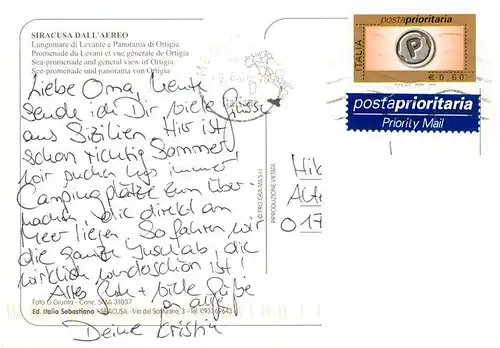 SIRACUSA DALL'AEREO
Lungomare di Levante e Panorama di Ortigia
Promenade du Levant et vue générale de Ortigia
Sea-promenade and general view of Ortigia
See-promenade und panorama von Ortigia
Liebe Oma, heute
sende ich Dir viele Grüsse
aus Sizilien. Hier ist
schon richtig Sommer.
Wir suchen uns immer
Campingplätze zum Über-
nachten, die direkt am
Meer liegen. So fahren wir
die ganze Insel ab, die
wirklich wunderschön ist!
Alles Gute + viele Grüße
an alle
Deine Kristin
Foto G.Giunta - Conc. SMA 31037
Ed. Italia Sebastiano - SIRACUSA - Via del Santuario, 3 - Tel. 0931
RIPRODUZIONE VIETATA
postaprioritaria
ITALIA
P
€ 0,60
postaprioritaria
Priority Mail
Hik
017